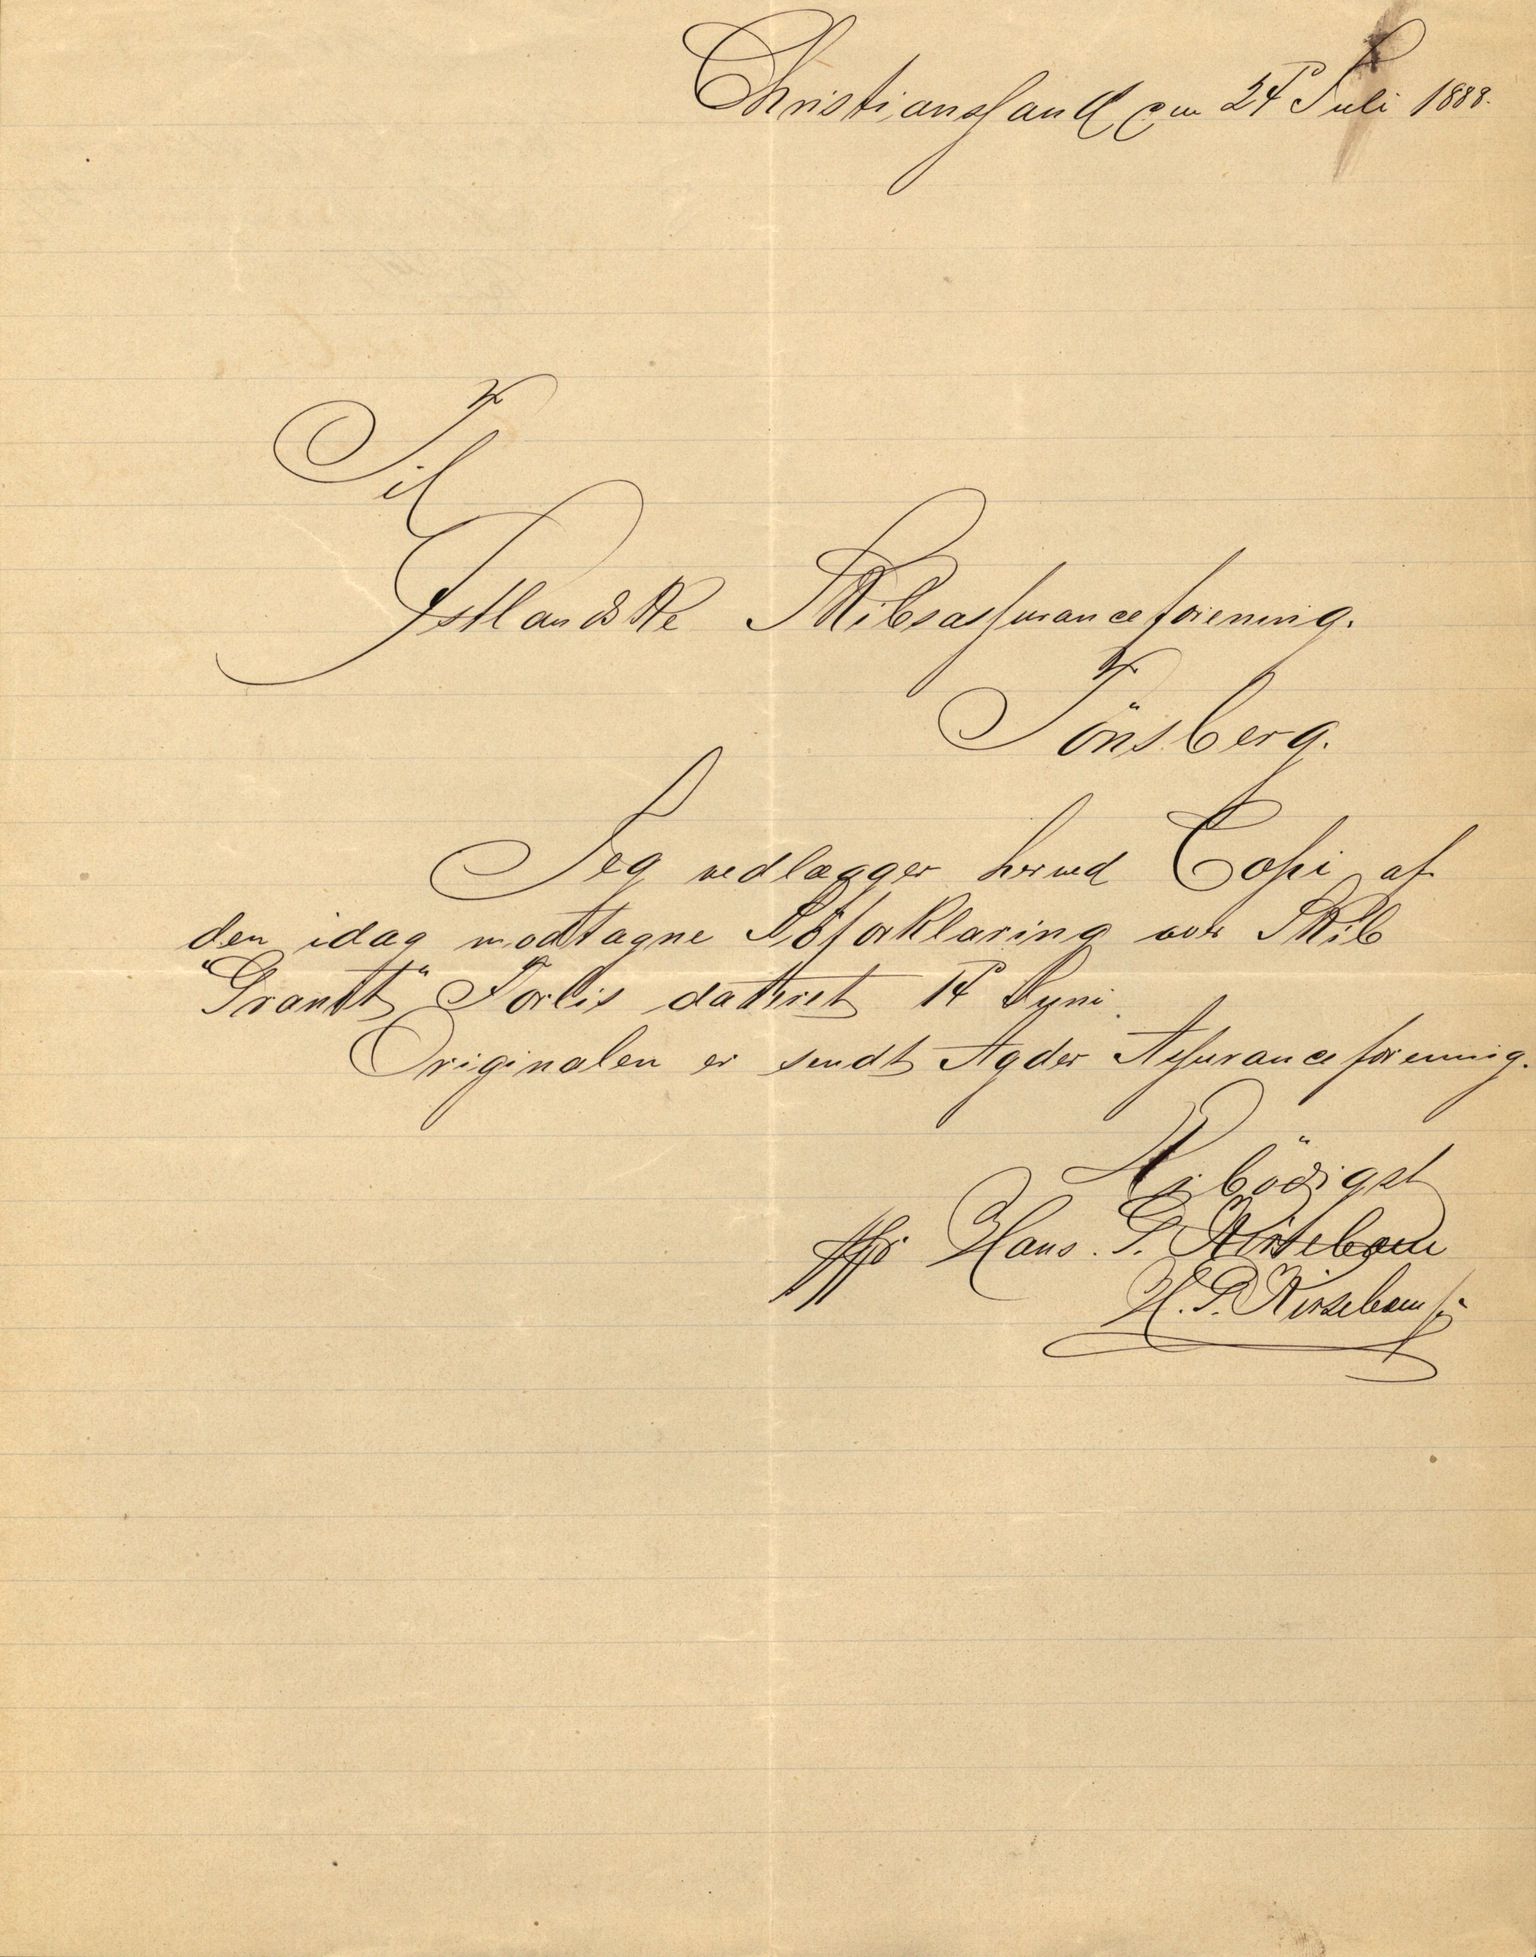 Christiansand den 24de Juli 1888.
Til
Østlandske Skibsassuranceforening.
Tönsberg.
Jeg vedlægger herved Copi af
den idag modtagne Söforklaring over Skib
"Granit" Forlis dateret 14de Juni.
Originalen er sendt Agder Assuranceforening.
Ærbödigst
Hans. P. Kirsebom
H. P. Kirsebom jr